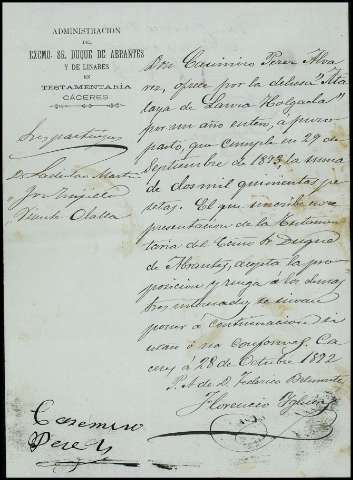 ADMINISTRACION
DEL
EXCMO. SR. DUQUE DE ABRANTES
Y DE LINARES
EN
TESTAMENTARÍA
CÁCERES
Don Casimiro Perez Alva
rez, ofrece por la dehesa "Ata
laya de Holgado"
por un año entero, á puro
pasto, que cumple en 29 de
Septiembre de 1893, la suma
de dos mil quinientas pe
setas. El que suscribe en re
presentacion de la Testamen
taría del Excmo Sr Duque
de Abrantes, acepta la pro
posicion y ruega á los demas
tres interesados se sirvan
poner á continuacion si
estan ó no conformes. Ca
ceres á 28 de Octubre 1892
P. A. de D. Federico Belmonte
Florencio Iglesias
Tres partícipes
D. Ladislao Martin
" José Trujillo
" Vicente Olalla
Casemiro
Perez